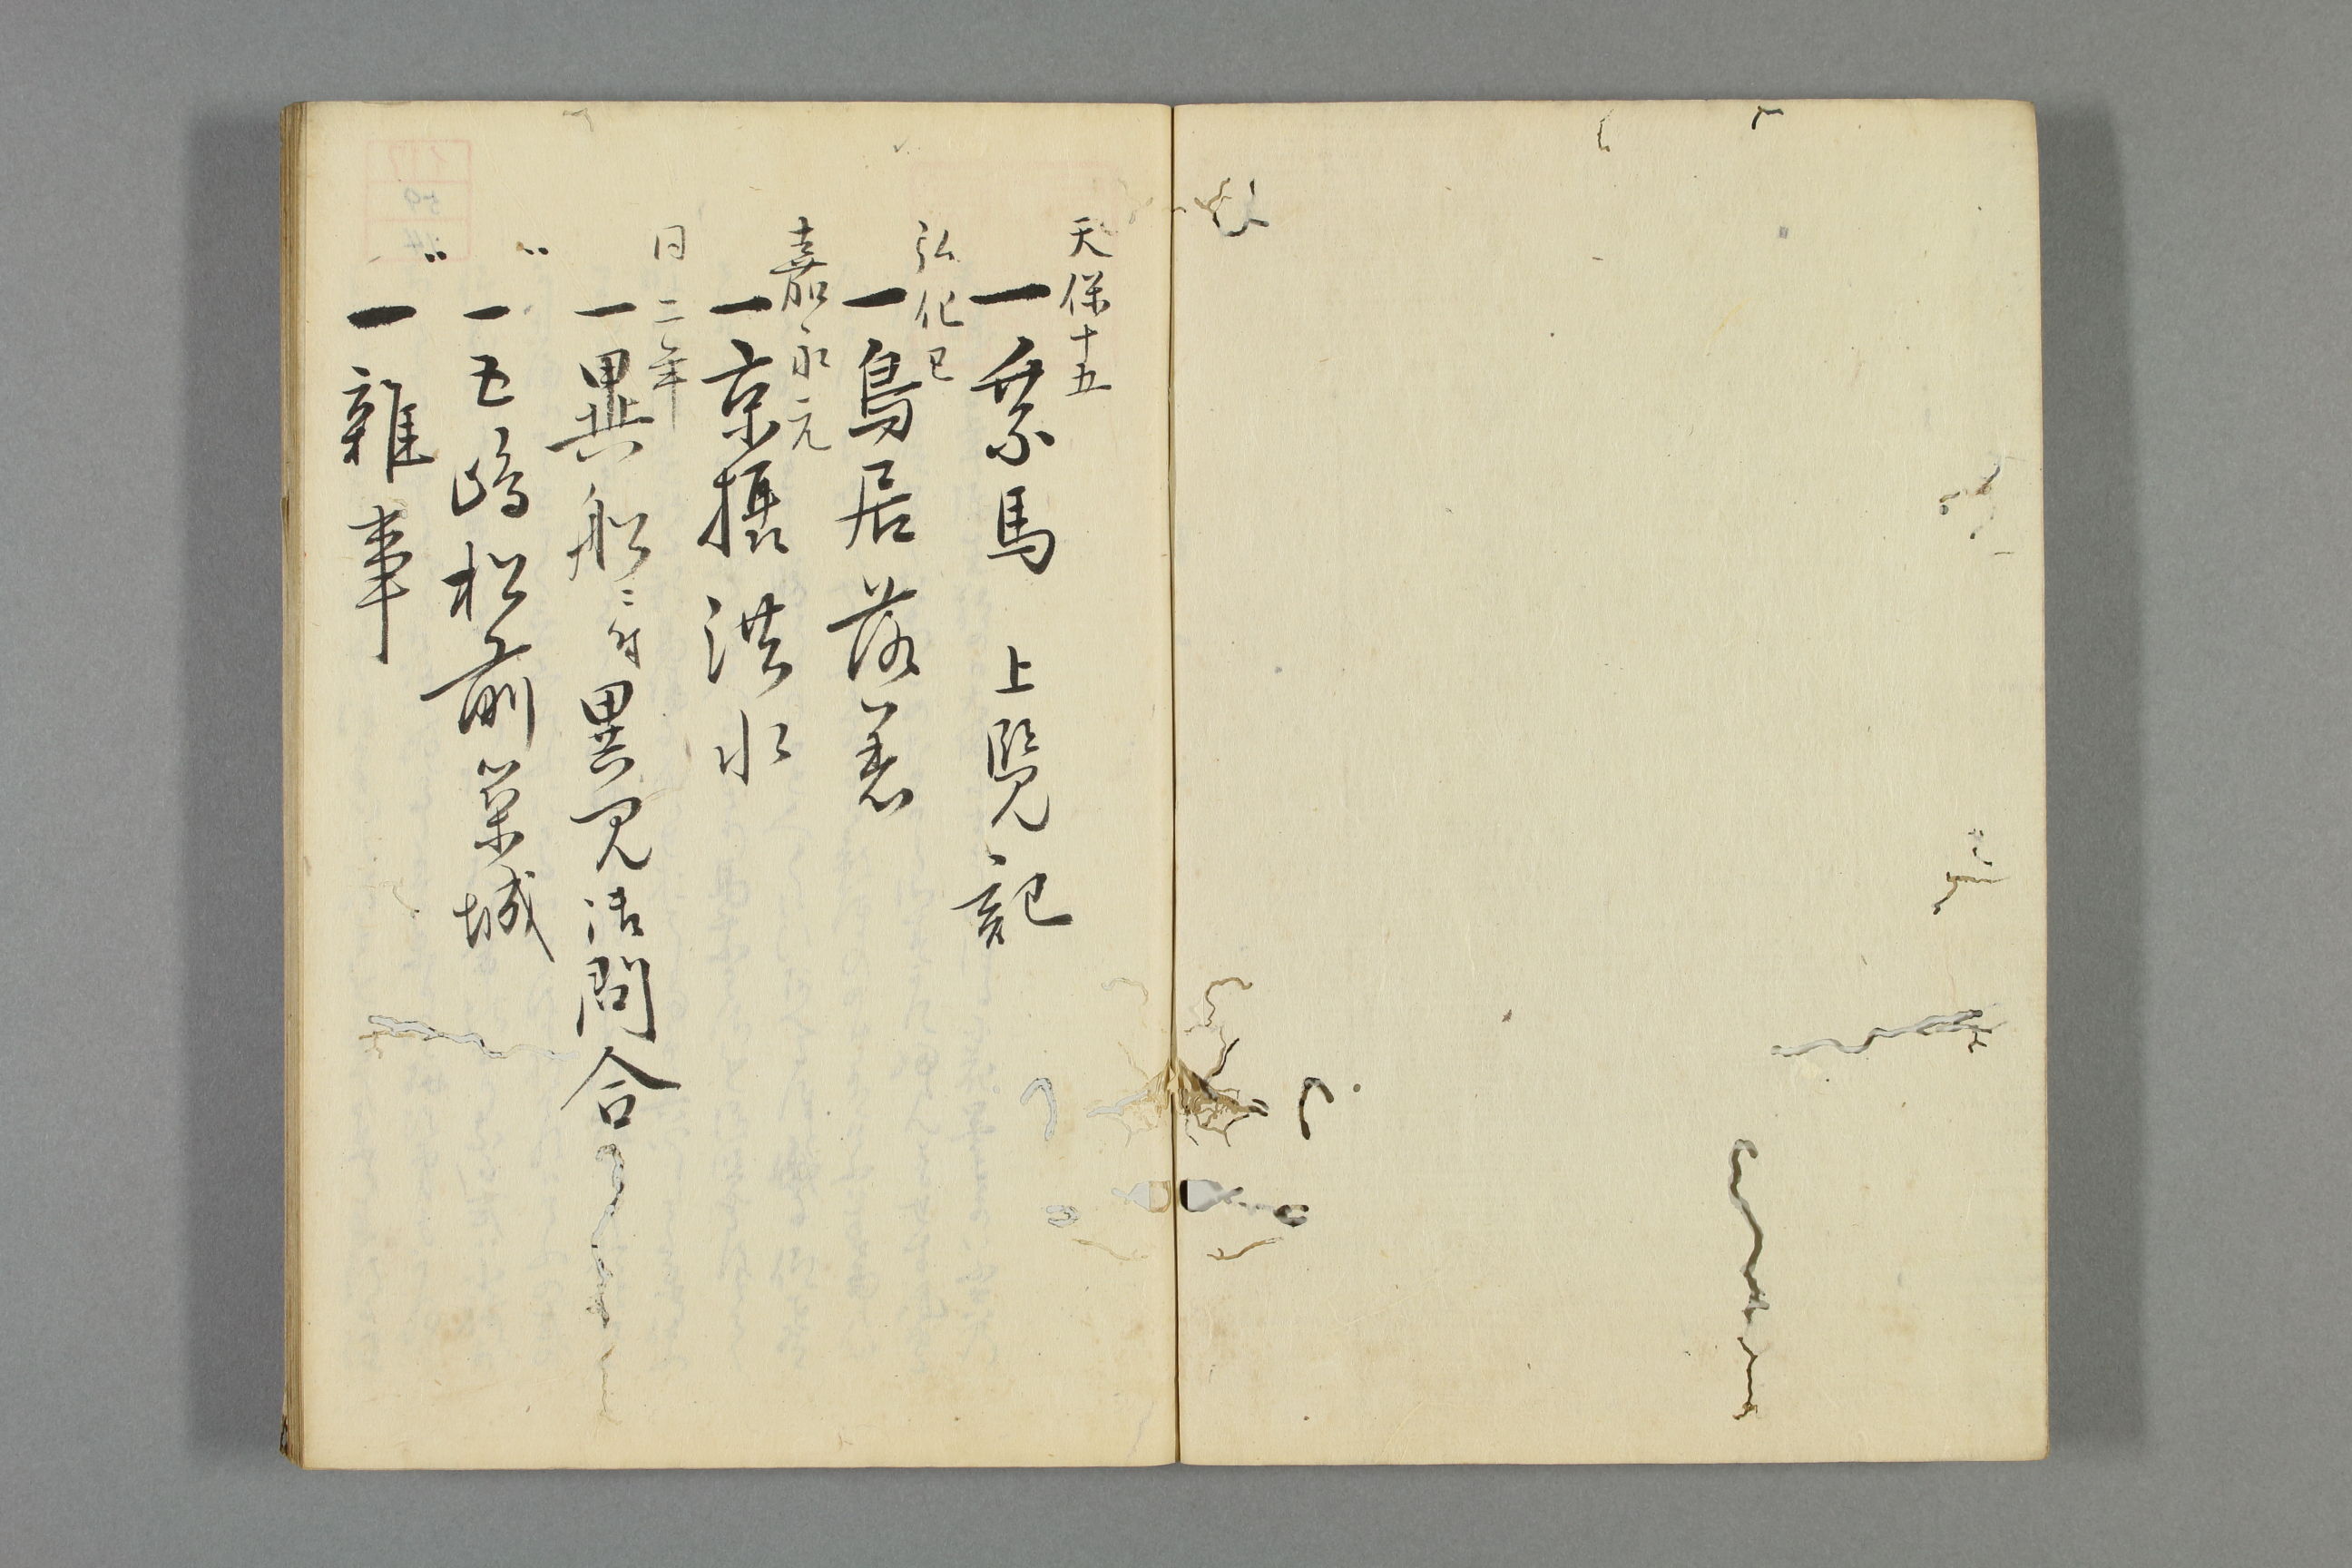 天保十五
一乗馬 上覧記
弘化巳
一鳥居落着
嘉永元
一京摂洪水
同二年
一異船ニ付異見御問合
〃
一五嶋松前築城
〃
一雑事